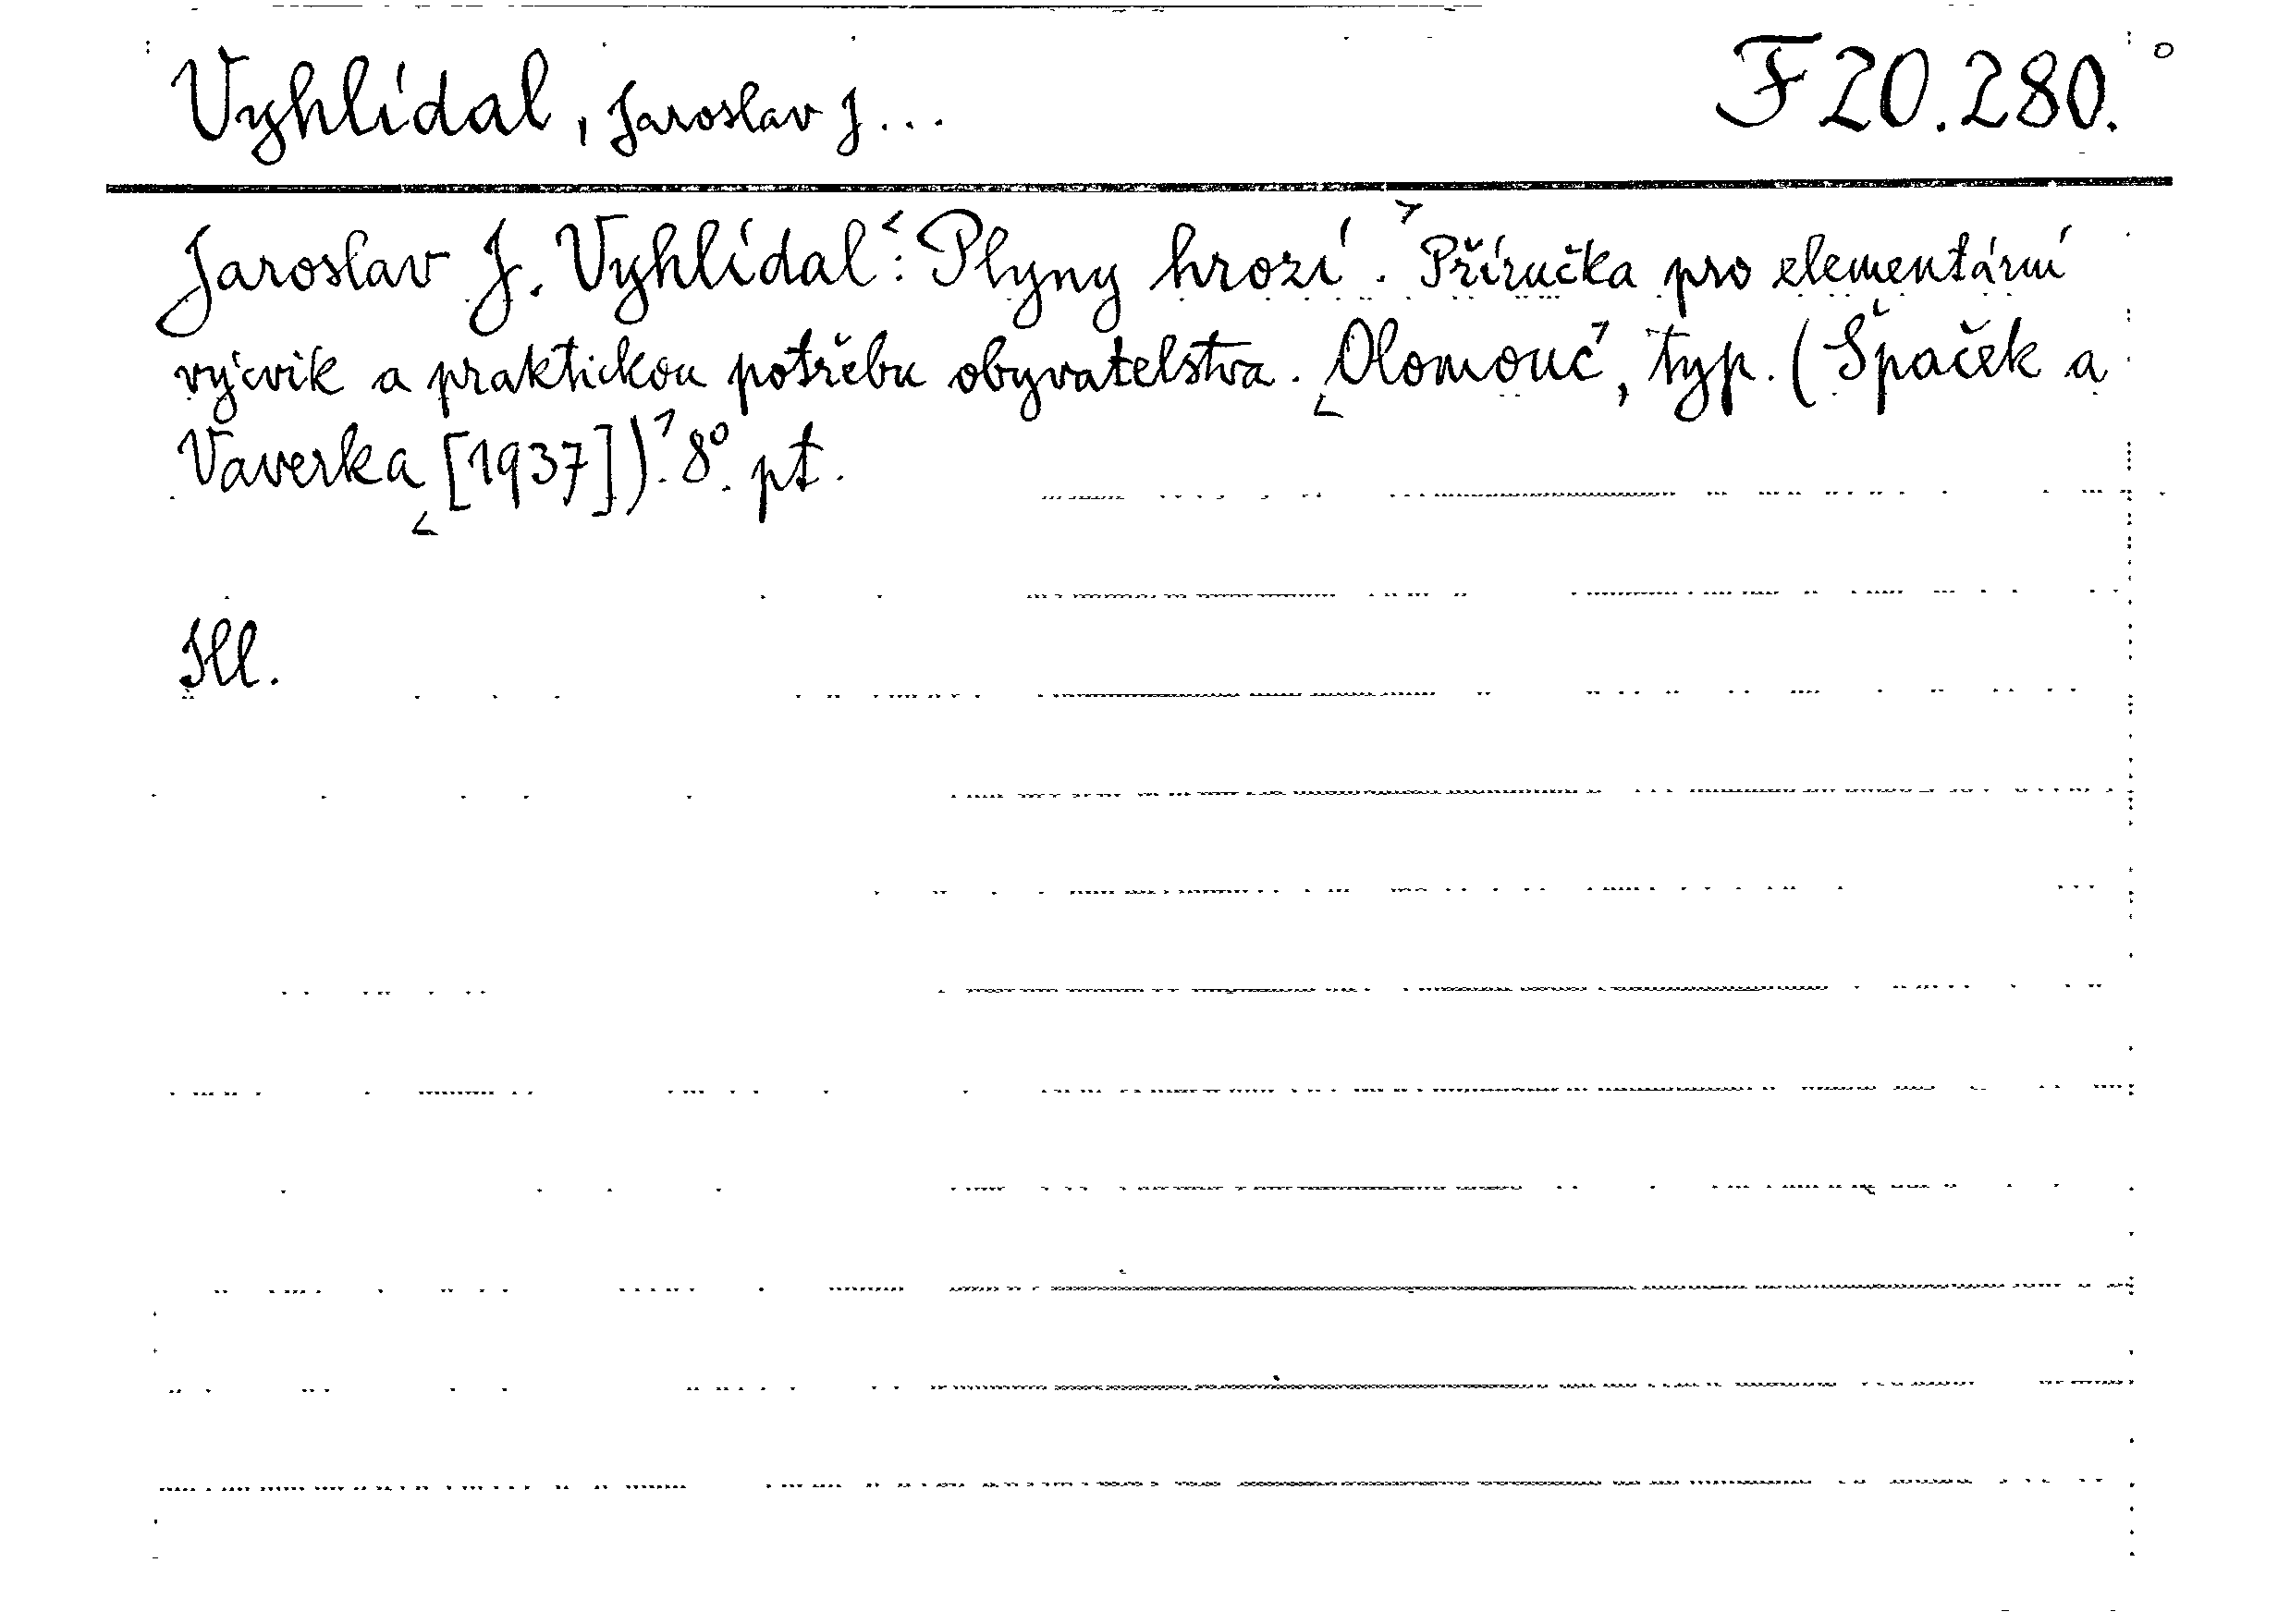 Vyhlídal, Jaroslav J... F 20.280.
Jaroslav J. Vyhlídal: Plyny hrozí. Příručka pro elementární
výcvik a praktickou potřebu obyvatelstva. Olomouc, typ. (Špaček a
Vaverka [1937]). 8° pt.
Ill.